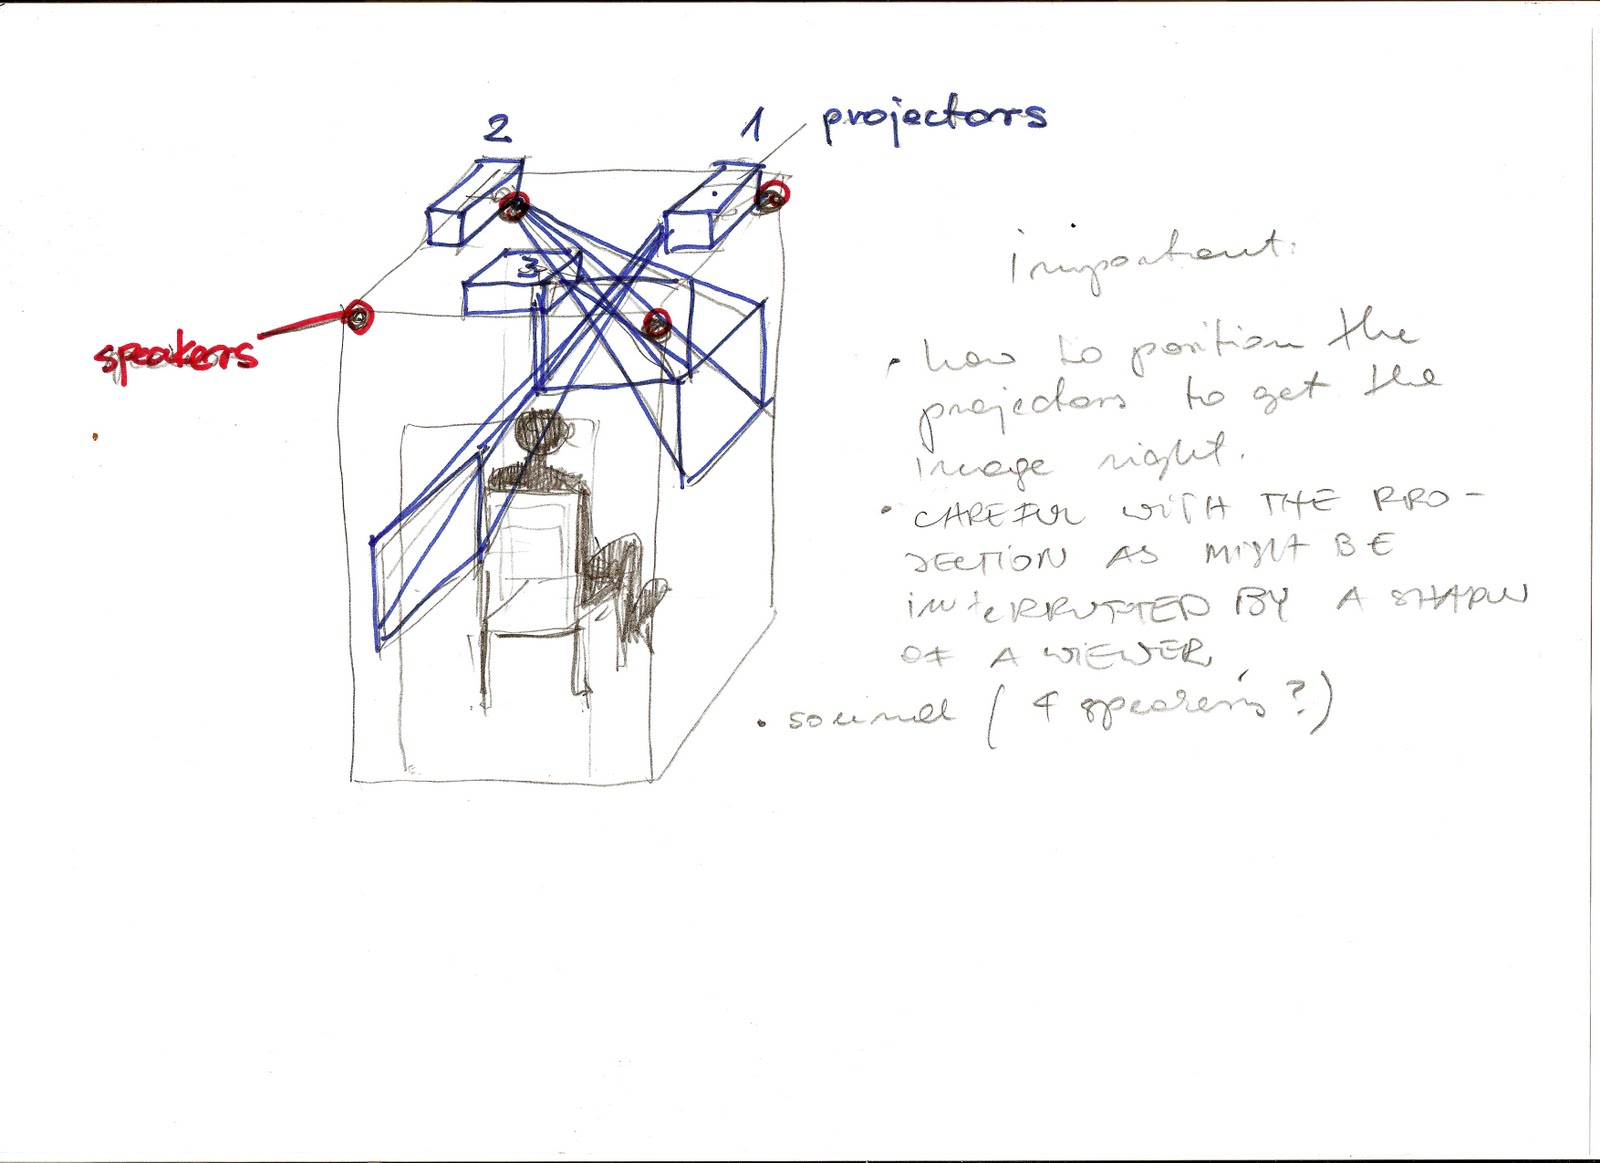 2
1
projectors
3
speakers
important:
• how to position the
projectors to get the
image right.
• CAREFUL WITH THE PRO-
JECTION AS MIGHT BE
INTERRUPTED BY A SHADOW
OF A VIEWER
• sound (4 speakers?)